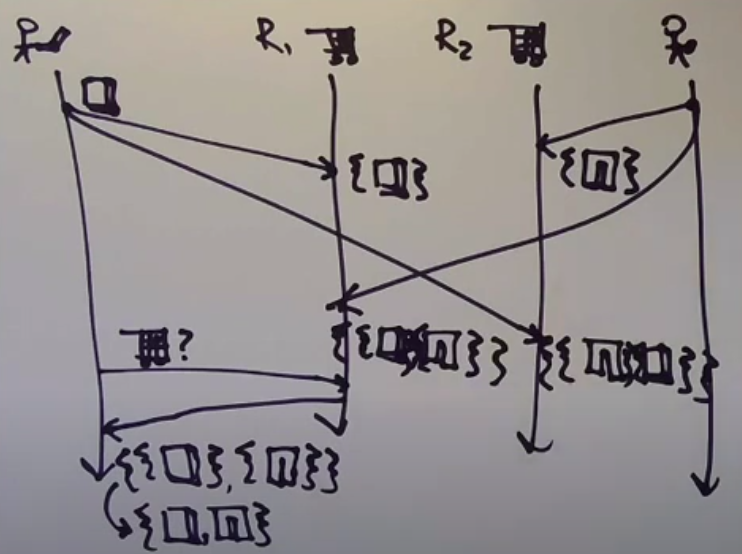 R₁
R₂
{ }
{ }
{{ } { }}
{{ } { }}
?
{{ }, { }}
{ , }